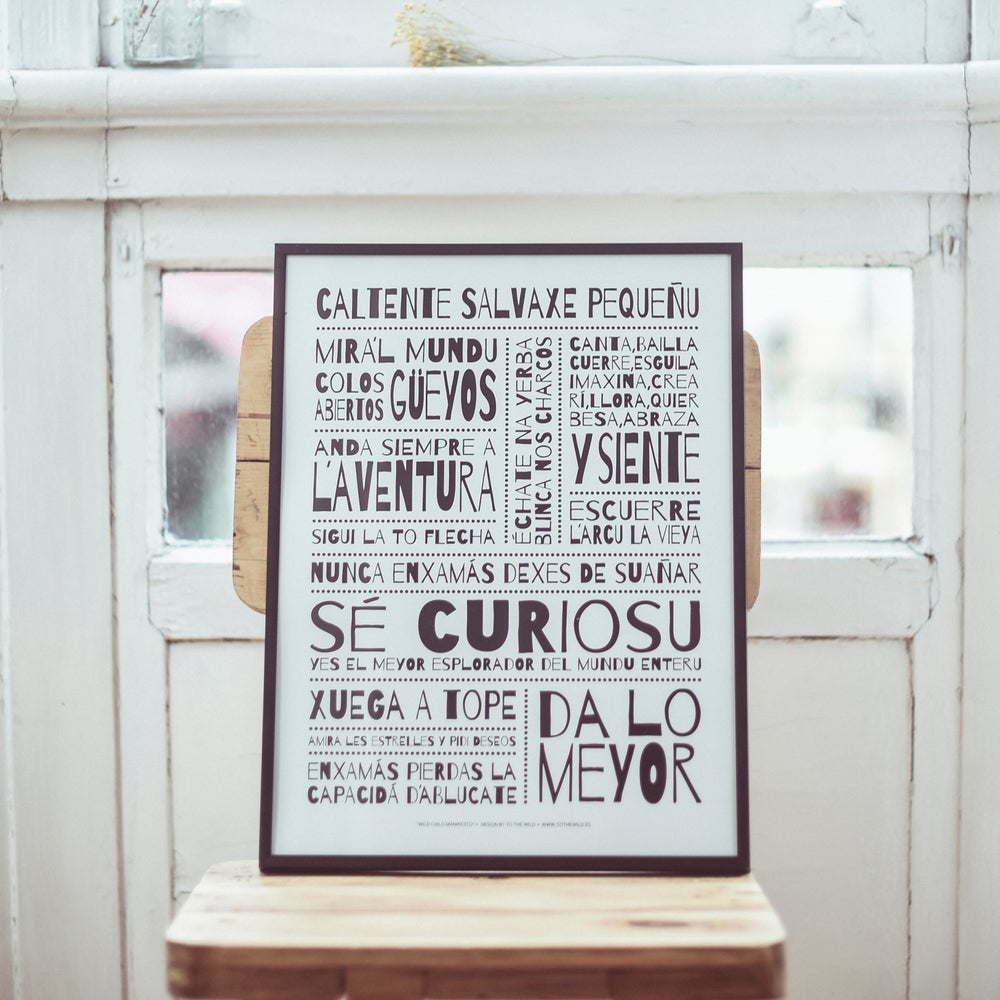 CALTENTE SALVAXE PEQUEÑU
MIRA'L MUNDU
COLOS
ABIERTOS
GÜEYOS
ANDA SIEMPRE A
L'AVENTURA
SIGUI LA TO FLECHA
ÉCHATE NA YERBA
BLINCA NOS CHARCOS
CANTA,BAILLA
CUERRE,ESGUILA
IMAXINA,CREA
RÍ,LLORA,QUIER
BESA,ABRAZA
Y SIENTE
ESCUERRE
L'ARCU LA VIEYA
NUNCA ENXAMÁS DEXES DE SUAÑAR
SÉ CURIOSU
YES EL MEYOR ESPLORADOR DEL MUNDU ENTERU
XUEGA A TOPE
AMIRA LES ESTRELLES Y PIDI DESEOS
ENXAMÁS PIERDAS LA
CAPACIDÁ D'ABLUCATE
DA LO
MEYOR
"WILD CHILD MANIFESTO" • DESIGN BY TO THE WILD • WWW.TOTHEWILD.ES